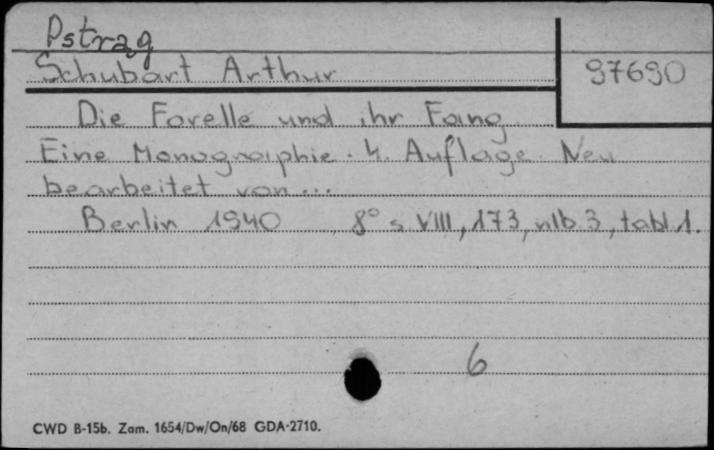 Pstrąg
Schubart Arthur
97690
Die Forelle und ihr Fang
Eine Monographie. 4. Auflage. Neu
bearbeitet von...
Berlin 1940 8° s. VIII, 173, nlb. 3, tabl 1.
6
CWD B-15b. Zam. 1654/Dw/On/68 GDA-2710.